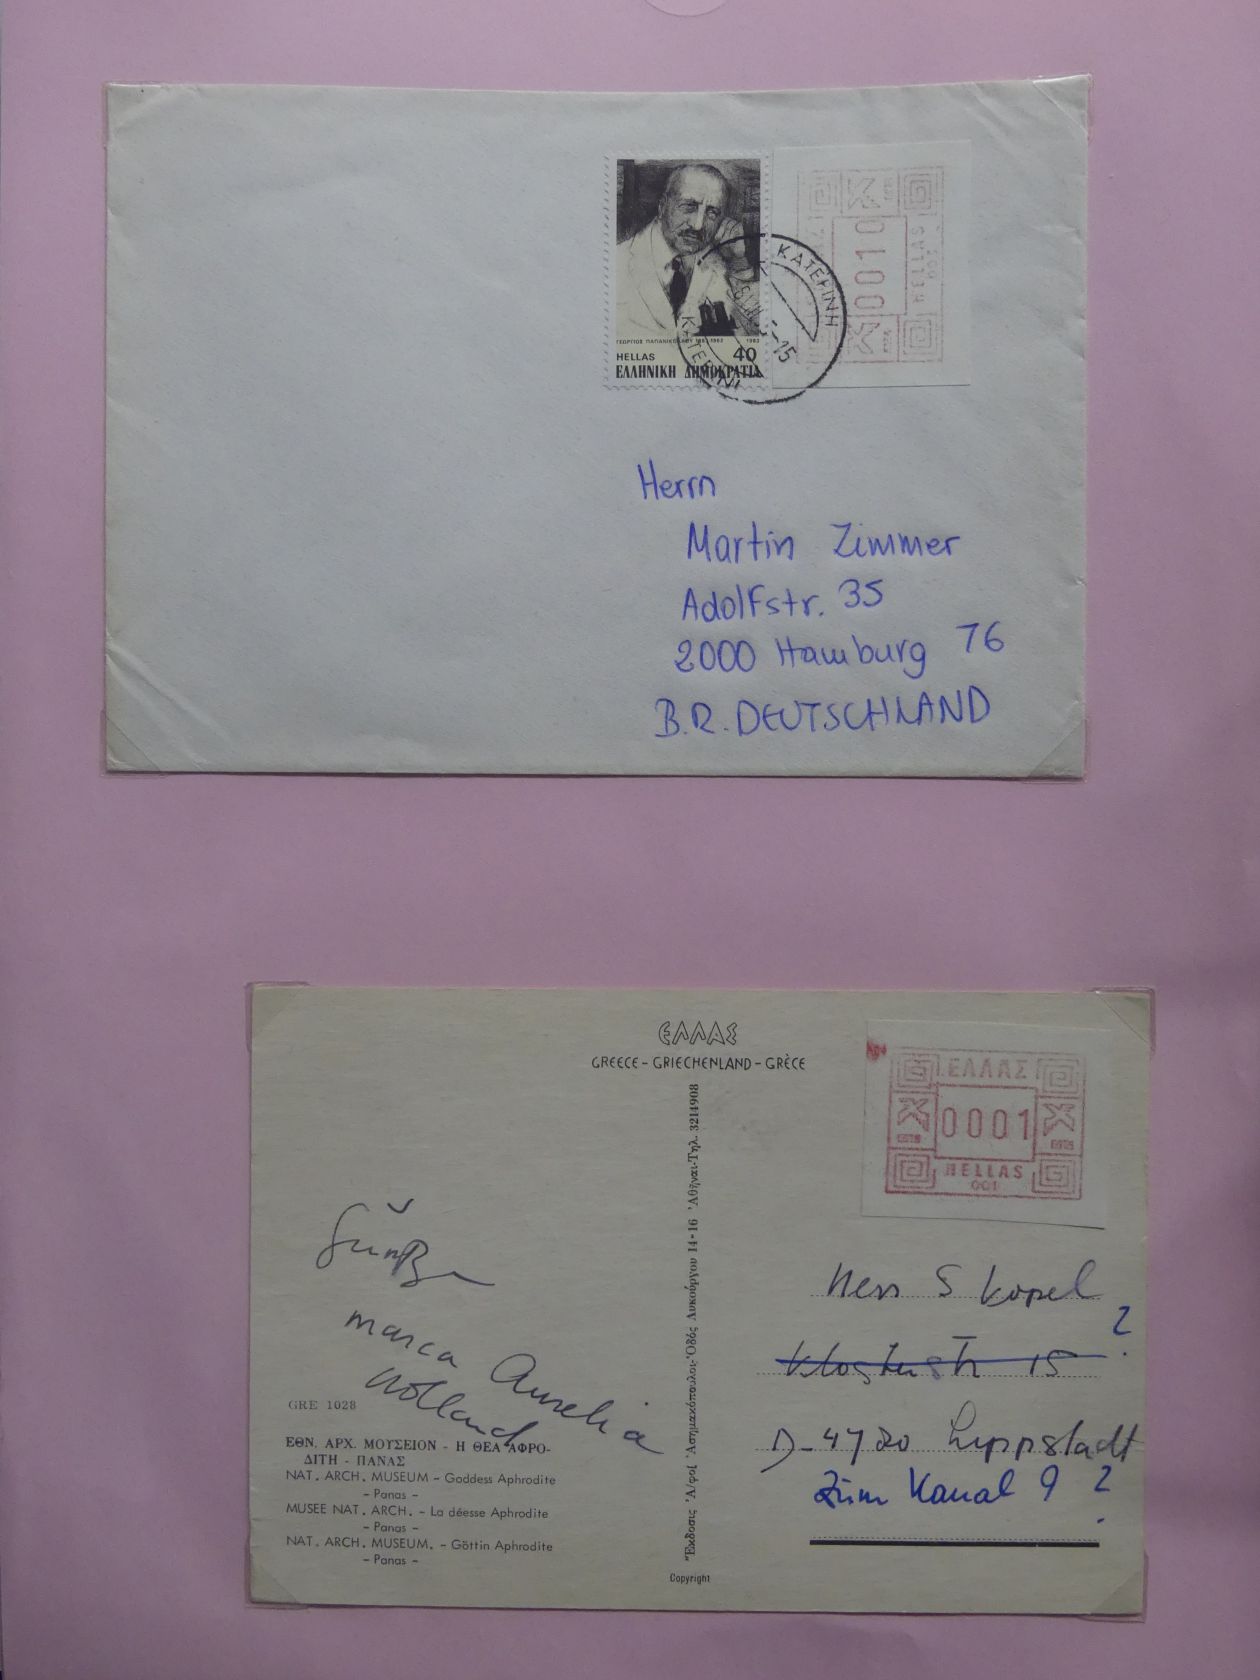 ΓΕΩΡΓΙΟΣ ΠΑΠΑΝΙΚΟΛΑΟΥ 1883-1962 1983
HELLAS 40
ΕΛΛΗΝΙΚΗ ΔΗΜΟΚΡΑΤΙΑ
ΚΑΤΕΡΙΝΗ
ΚΑΤΕΡΙΝΗ
0010
HELLAS
Herrn
Martin Zimmer
Adolfstr. 35
2000 Hamburg 76
B.R. DEUTSCHLAND
ΕΛΛΑΣ
GREECE - GRIECHENLAND - GRÈCE
ΕΛΛΑΣ
0001
HELLAS
001
Grüße
Marca Aurelia
Holland
GRE 1028
ΕΘΝ. ΑΡΧ. ΜΟΥΣΕΙΟΝ - Η ΘΕΑ ΑΦΡΟ-
ΔΙΤΗ - ΠΑΝΑΣ
NAT. ARCH. MUSEUM - Goddess Aphrodite
- Panas -
MUSEE NAT. ARCH. - La déesse Aphrodite
- Panas -
NAT. ARCH. MUSEUM. - Göttin Aphrodite
- Panas -
Ἔκδοσις Ἀ/φοί Ἀσημακόπουλοι-Ὁδός Λυκούργου 14-16 Ἀθῆναι-Τηλ. 3214908
Copyright
Herr S Kopel
?
Klosterstr 15
D-4780 Lippstadt
Zum Kanal 9 ?